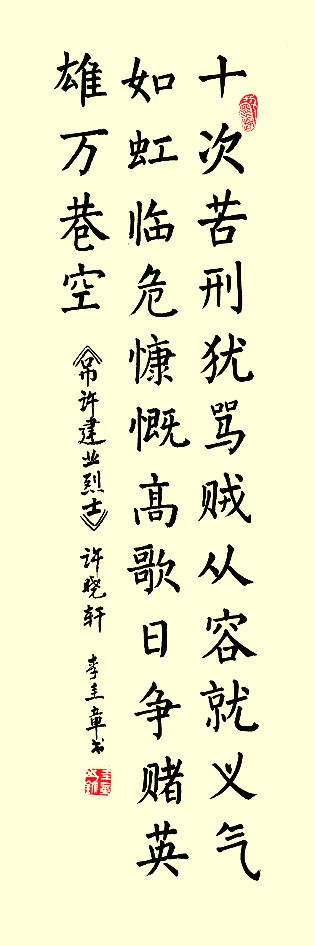 十次苦刑犹骂贼从容就义气
如虹临危慷慨高歌日争赌英
雄万巷空
《吊许建业烈士》许晓轩 李圭章书